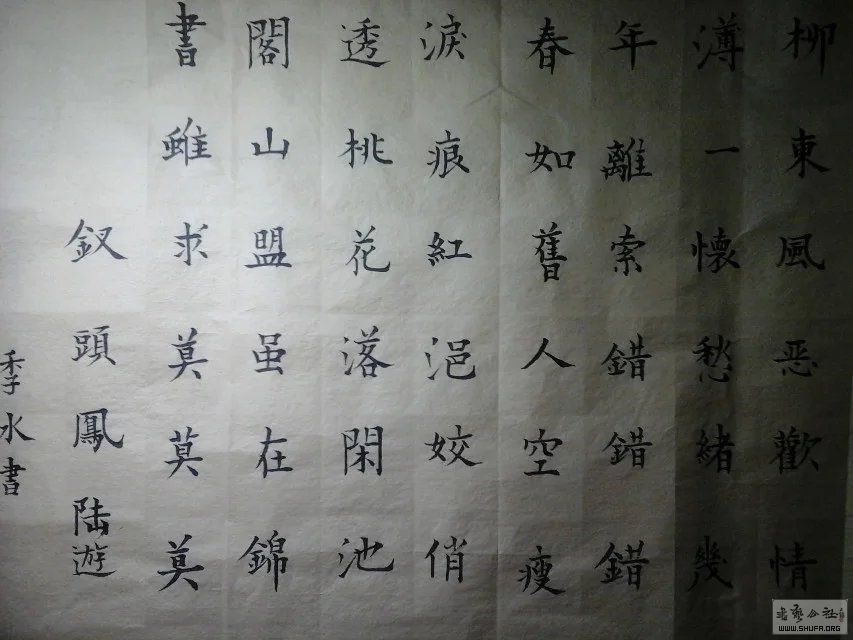 柳東風恶歡情
薄一懷愁緒幾
年離索錯錯錯
春如舊人空瘦
淚痕紅浥姣俏
透桃花落閑池
閣山盟虽在錦
書雖求莫莫莫
釵頭鳳陆遊
季水書
書藝公社
WWW.SHUFA.ORG